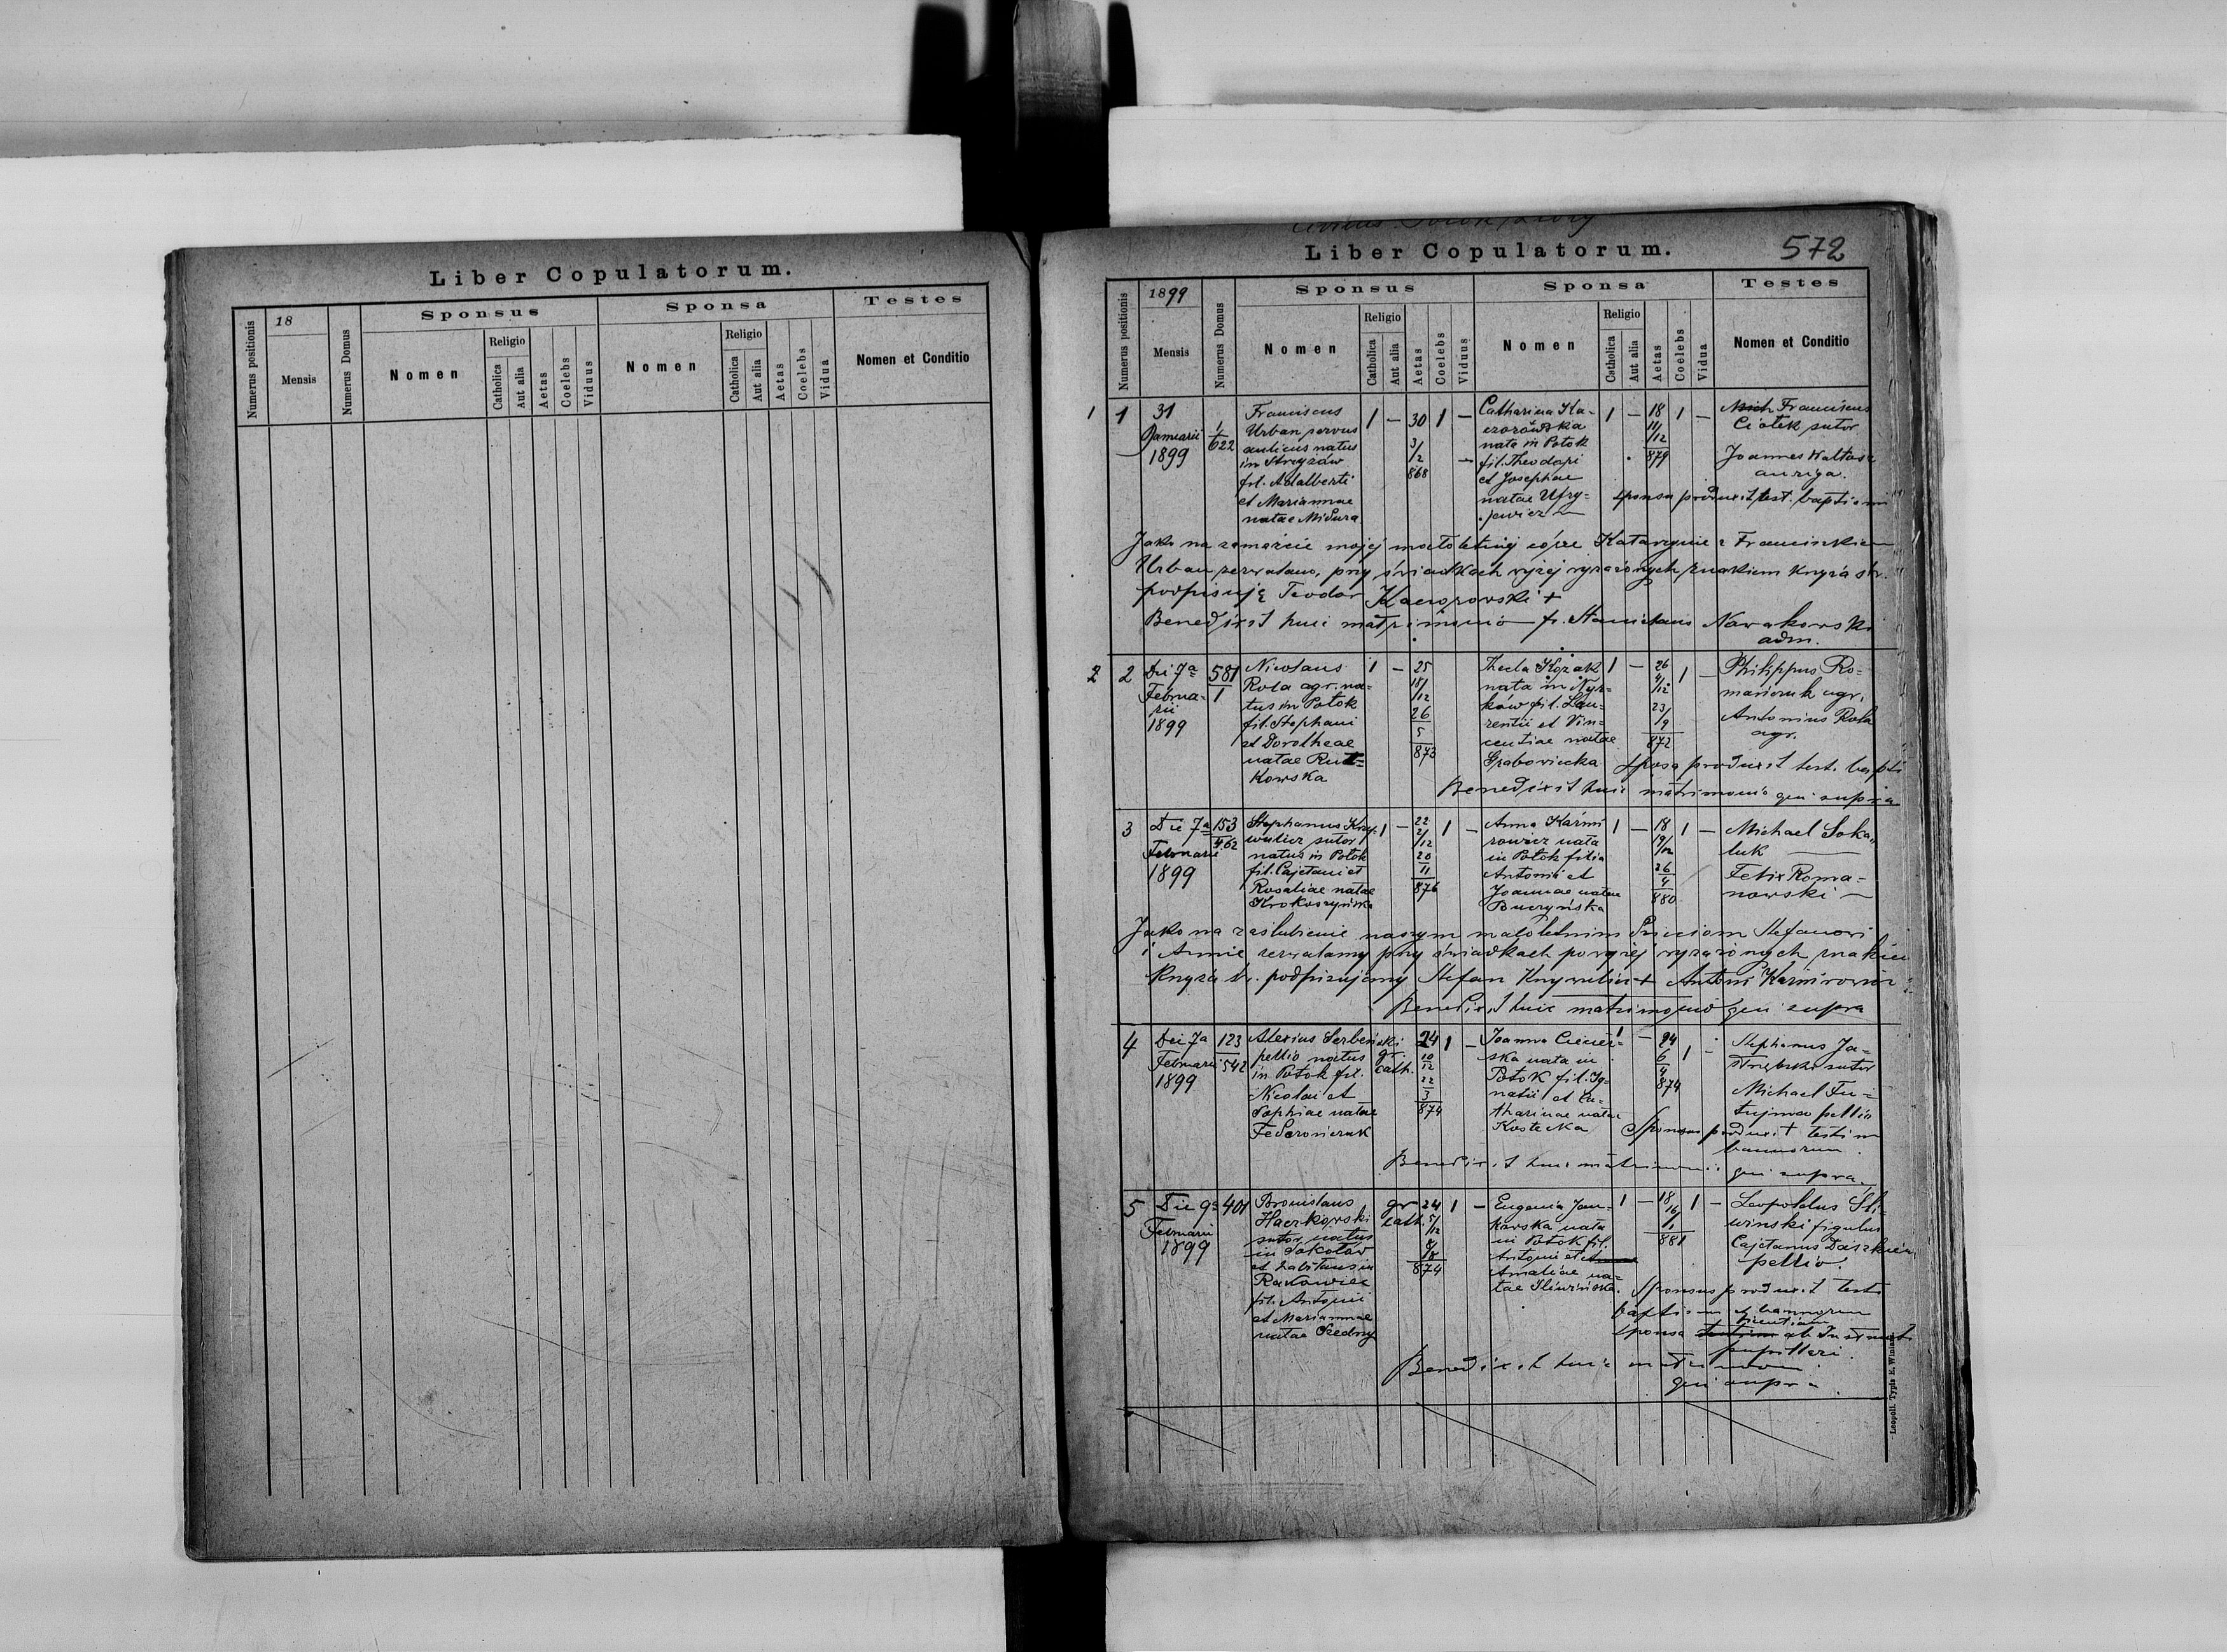 Liber Copulatorum.
Numerus positionis
18
Mensis
Numerus Domus
Sponsus
Nomen
Religio
Catholica
Aut alia
Aetas
Coelebs
Viduus
Sponsa
Nomen
Religio
Catholica
Aut alia
Aetas
Coelebs
Vidua
Testes
Nomen et Conditio
Liber Copulatorum.
572
Numerus positionis
1899
Mensis
Numerus Domus
Sponsus
Nomen
Religio
Catholica
Aut alia
Aetas
Coelebs
Viduus
Sponsa
Nomen
Religio
Catholica
Aut alia
Aetas
Coelebs
Vidua
Testes
Nomen et Conditio
1 1
31
Januarii
1899
1/622
Franciscus
Urban servus
aulicus natus
in Strzyżów
fil. Adalberti
et Mariannae
natae Midura
1 — 30 1 —
3/
/2
868
Catharina Ka-
czorowska
nata in Potok
fil. Theodori
et Josephae
natae Ufry-
jewicz
1 — 18 1 —
11/
/12
879
Franciscus
Ciołek sutor
Joannes
auriga.
sponsa produxit test. baptismi
Jako na zamężcie mojej małoletniej córce Katarzynie z Franciszkiem
Urban zezwalam, przy świadkach wyżej wyrażonych znakiem krzyża św.
podpisuję Teodor Kaczorowski +
Benedixit huic matrimonio fr. Stanislaus Nowakowski
adm.
2 2
Die 7a
Februa-
rii
1899
581
1
Nicolaus
Rola agr. na-
tus in Potok
fil. Stephani
et Dorotheae
natae Rut-
kowska
1 — 25
/12
26
5
873
Thecla Kozak
nata in Nyr-
kow fil. Lau-
rentii et Vin-
centiae natae
Grabowiecka
1 — 26 1 —
4/12
23/
/9
872
Philippus Ro-
maniuk agr.
Antonius Rola
agr.
sponsa produxit test. bapti
Benedixit huic matrimonio qui supra
3
Die 7a
Februarii
1899
153
462
Stephanus Krzy-
wulicz sutor
natus in Potok
fil. Cajetani et
Rosaliae natae
Krokoszyńska
1 — 22 1 —
2/
/12
20
11
876
Anna Kaźmi
rowicz nata
in Potok filia
Antonii et
Joannae natae
Buczyńska
1 — 18 1 —
/12
26
4
880
Michael Soka-
luk
Felix Roma-
nowski
Jako na zaślubienie naszym małoletnim Stefanowi
i Annie zezwalamy przy świadkach powyżej wyrażonych znakiem
krzyża św. podpisujemy Stefan + Antoni
Benedixit huic matrimonio qui supra
4
Die 7a
Februarii
1899
123
542
Alexius Serbeński
pellio natus
in Potok fil.
Nicolai et
Sophiae natae
Federoniczuk
gr.
cath.
24 1 —
10
12
22
3
874
Joanna
ska nata in
Potok fil. Ig-
natii et Ca-
tharinae natae
Kostecka
1 — 24 1 —
6
4
874
Stephanus Ja-
strzębski sutor
Michael Fu-
pellio
Sponsus produxit testim
bannorum
Benedixit huic matrimonio qui supra.
5
Die 9a
Februarii
1899
401
Bronislaus
Haczkowski
sutor natus
in Sokołów
et habitans in
Rakowiec
fil. Antonii
et Mariannae
natae Średny
gr
cath.
24 1 —
5/
/12
8/
18
874
Eugenia Jan-
kowska nata
in Potok fil.
Antonii et
Amaliae na-
tae Śliwińska
1 — 18 1 —
16/
/1
881
Leopoldus Śli-
wiński figulus
Cajetanus Daszkiewicz
pellio.
Sponsus produxit testi
baptism et bannorum
sponsa licentiam ab
pupillari.
Benedixit huic matrimonio
qui supra
Leopoli. Typis E. Winiarz